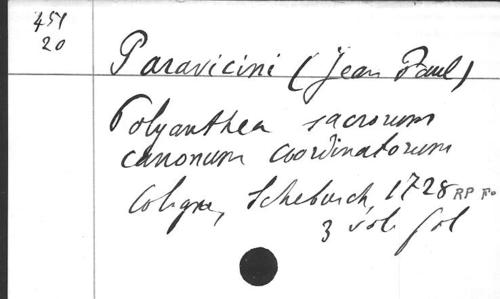 451
20
Paravicini (Jean Paul)
Polyanthea sacrorum
canonum coordinatorum
Cologne, Schebusch, 1728 RP Fo
3 vol fol